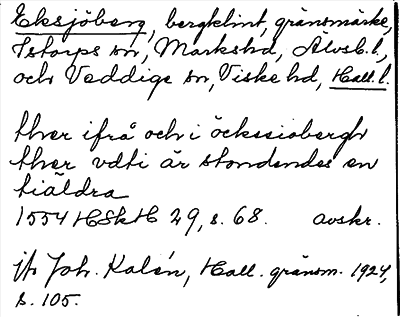 Eksjöberg, bergklint, gränsmärke,
Istorps sn, Markshd, Älvsb. l.,
och Veddige sn, Viske hd, Hall. l.
ther ifrå och i öckesiobergh
ther vdti är stondendes en
tiäldra
1554 HSkH 29, s. 68. avskr.
jfr Joh. Kalén, Hall. gränsm. 1924,
s. 105.